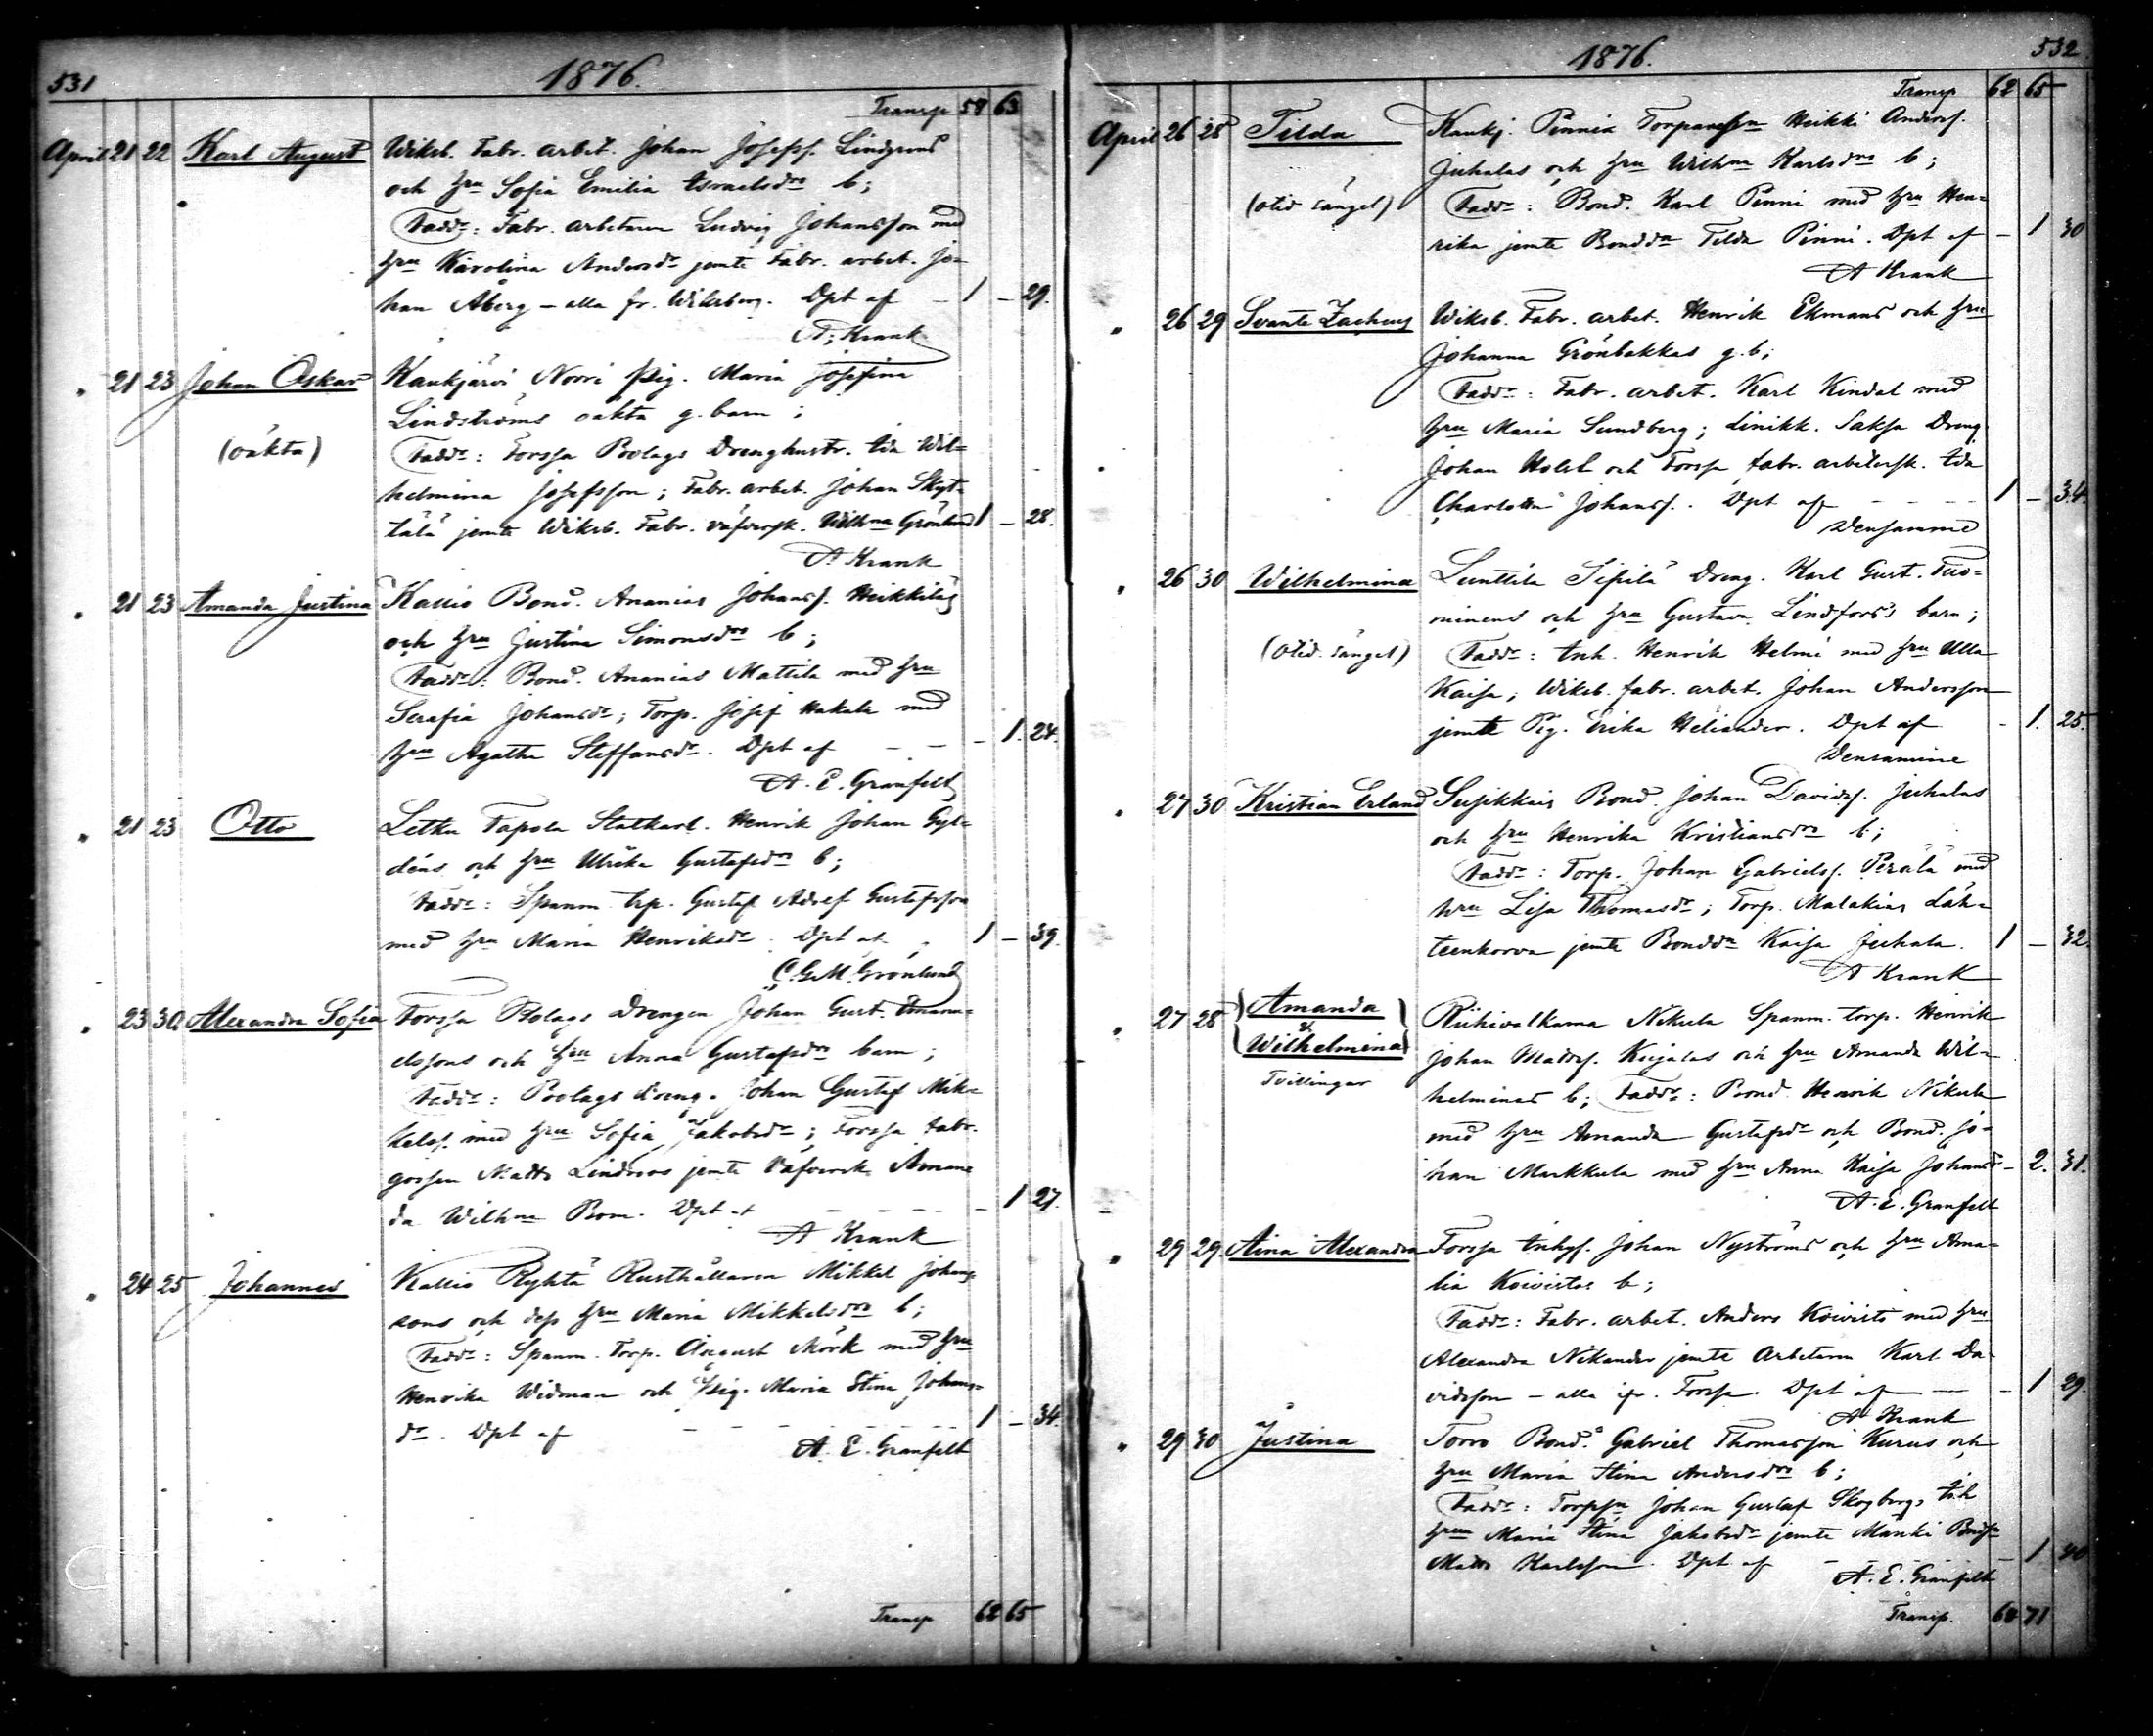 531
1876.
Transp 58 63
April 21 22 Karl August Wiksb. Fabr. arbet. Johan Josefss. Lindgrens
och hru Sofia Emilia Israelsdrs b;
Faddr: Fabr. arbetaren Ludvig Johansson med
hru Karolina Andersdr jemte Fabr. arbet. Jo-
han Åberg – alla fr. Wiksberg. Dpt af – 1 – 29.
A. Krank
" 21 23 Johan Oskar Kaukjärvi Norri Pig. Maria Josefina
Lindströms oäkta g. barn;
(oäkta) Faddr: Forssa Bolags Drenghustr. Ida Wil-
helmina Josefsson; Fabr. arbet. Johan Skyt-
tälä jemte Wiksb. Fabr. väfversk. Wilhna Grönlund 1 – 28.
A Krank
" 21 23 Amanda Justina Kallio Bond. Ananias Johanss. Heikkiläs
och hru Justina Simonsdrs b;
Faddr: Bond. Ananias Mattila med hru
Serafia Johansdr; Torp. Josef Hakala med
hru Agatha Steffansdr. Dpt af – – – 1. 24.
A. E. Granfelt
" 21 23 Otto Letku Tapola Statkarl. Henrik Johan Gyl-
déns och hru Ulrika Gustafsdrs b;
Faddr: Spanm. trp. Gustaf Adolf Gustafsson
med hru Maria Henriksdr. Dpt af 1 – 39.
C. G. M. Grönlund
" 23 30 Alexandra Sofia Forssa Bolags Drengen Johan Gust. Emanu-
elssons och hru Anna Gustafsdrs barn;
Faddr: Bolags dreng. Johan Gustaf Mik-
kelss. med hru Sofia Jakobsdr; Forssa fabr.
gossen Matts Lindroos jemte Väfversk. Aman-
da Wilhna Bom. Dpt af – – – – 1 27.
A Krank
" 24 25 Johannes Kallio Ryhtä Rusthållaren Mikkel Johans-
sons och dess hru Maria Mikkelsdrs b;
Faddr: Spanm. Torp. August Mörk med hru
Henrika Widman och Pig. Maria Stina Johans-
dr. Dpt af – – – – – 1 – 34.
A. E. Granfelt
Transp 62 65
532
1876.
Transp 62 65
April 26 28 Tilda Kaukj. Pinnin Torparesson Heikki Anderss.
Juhalas och hru Wilhna Karlsdrs b;
(otid. sängel.) Faddr: Bond. Karl Pinni med hru Hen-
rika jemte Bonddr Tilda Pinni. Dpt af – 1 30
A Krank
" 26 29 Svante Zacheus Wiksb. Fabr. arbet. Henrik Ekmans och hru
Johanna Grönbakkas g. b;
Faddr: Fabr. arbet. Karl Kindal med
hru Maria Sundberg; Linikk. Saksa Dreng
Johan Holst och Forssa fabr. arbetersk. Ida
Charlotta Johanss. Dpt af – – – – 1 – 34.
Densamme
" 26 30 Wilhelmina Lunttila Sipilä Dreng. Karl Gust. Tuo-
minens och hru Gustava Lindfors's barn;
(otid. sängel) Faddr: Inh. Henrik Helmi med hru Ulla
Kaisa; Wiksb. fabr. arbet. Johan Andersson
jemte Pig. Erika Heliander. Dpt af – 1. 25.
Densamme
" 27 30 Kristian Erland Susikkais Bond. Johan Davidss. Juhalas
och hru Henrika Kristiansdrs b;
Faddr: Torp. Johan Gabrielss. Perälä med
hru Lisa Thomasdr; Torp. Malakias Läh-
teenkorva jemte Bonddr Kaisa Juhala. 1 – 32.
A Krank
" 27 28 Amanda & Wilhelmina Riihivalkama Nikula Spanm. torp. Henrik
Johan Mattss. Kujalas och hru Amanda Wil-
Tvillingar helminas b; Faddr: Bond. Henrik Nikula
med hru Amanda Gustafsdr och Bond. Jo-
han Markkula med hru Anna Kaisa Johansdr – 2. 31.
A. E. Granfelt
" 29 29. Aina Alexandra Forssa Inhys. Johan Nyströms och hru Ama-
lia Koivistos b;
Faddr: Fabr. arbet. Anders Koivisto med hru
Alexandra Nikander jemte Arbetaren Karl Da-
vidsson – alla ifr. Forssa. Dpt af – – 1 29.
A Krank
" 29 30 Justina Torro Bond. Gabriel Thomasson Kurus och
hru Maria Stina Andersdrs b;
Faddr: Torpsn Johan Gustaf Skogberg,
hrun Maria Stina Jakobsdr jemte Manki Bndsn
Matts Karlsson. Dpt af – – – – 1 40
A. E. Granfelt
Transp. 64 71